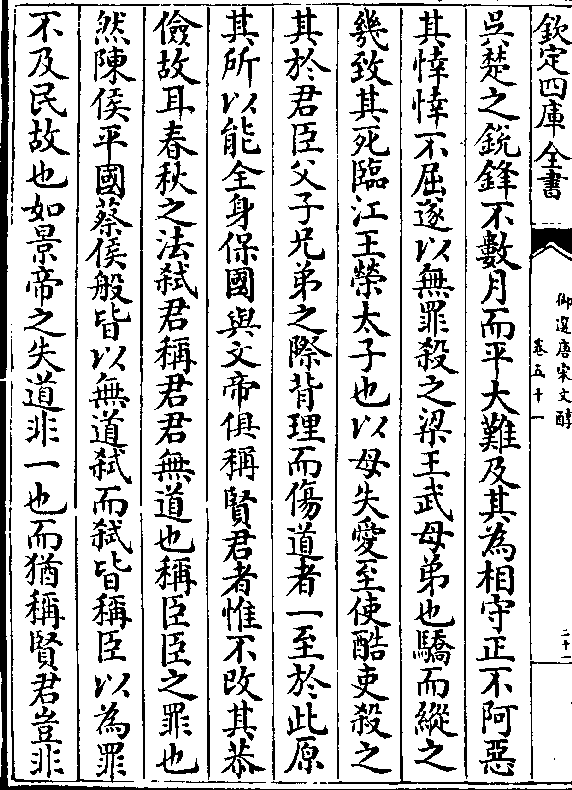 欽定四庫全書
御選唐宋文醇
卷五十一
二十一
吳楚之鋭鋒不數月而平大難及其為相守正不阿惡
其悻悻不屈遂以無罪殺之梁王武母弟也驕而縱之
幾致其死臨江王榮太子也以母失愛至使酷吏殺之
其於君臣父子兄弟之際背理而傷道者一至於此原
其所以能全身保國與文帝俱稱賢君者惟不改其恭
儉故耳春秋之法弑君稱君君無道也稱臣臣之罪也
然陳侯平國蔡侯般皆以無道弑而弑皆稱臣以為罪
不及民故也如景帝之失道非一也而猶稱賢君豈非